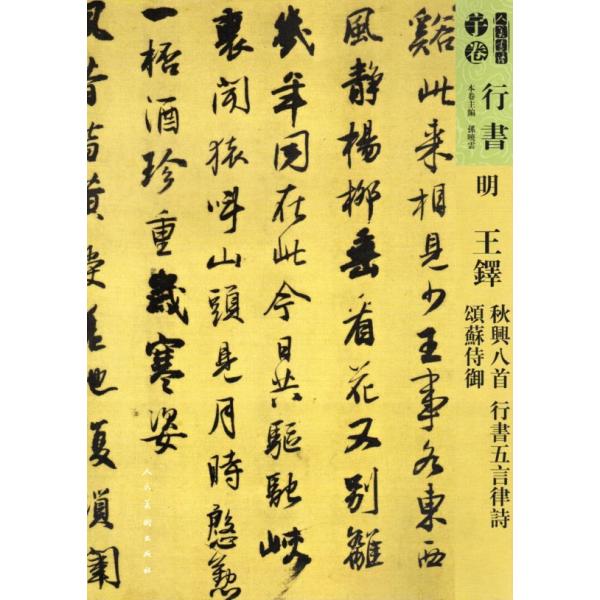 人美書譜
子卷
行書
本卷主編 孫曉雲
明 王鐸
秋興八首 行書五言律詩
頌蘇侍御
谿此来相見少王事各東西
風靜楊柳垂看花又別離
幾年同在此今日共驅馳峽
裏聞猿叫山頭見月時慇懃
一桮酒珍重歲寒姿
人民美術出版社